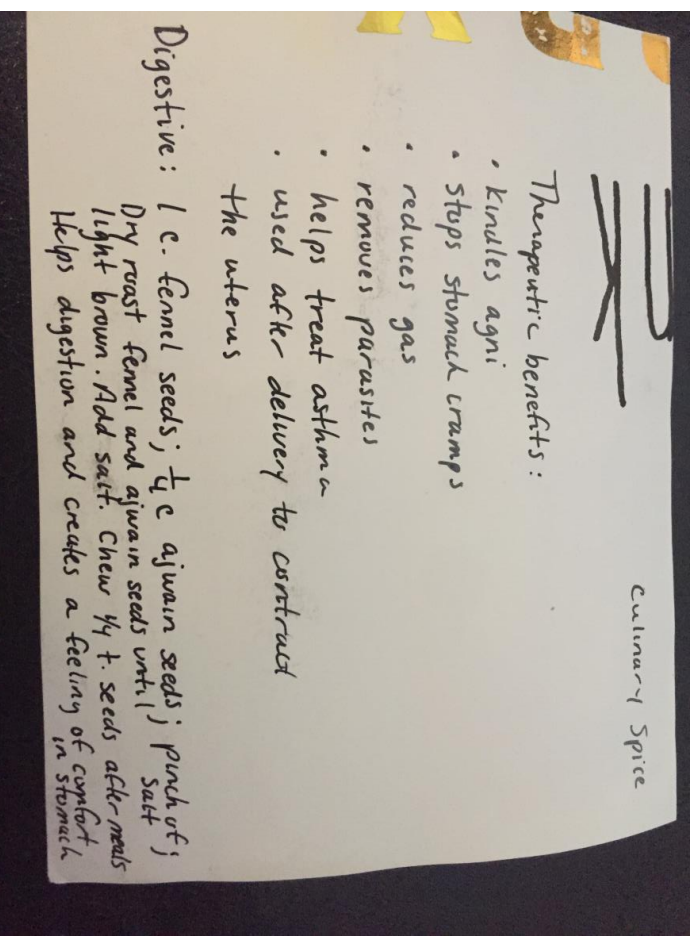 Culinary Spice
Therapeutic benefits:
• kindles agni
• stops stomach cramps
• reduces gas
• removes parasites
• helps treat asthma
• used after delivery to contract
the uterus
Digestive: 1 c. fennel seeds; 1/4 c ajwain seeds; pinch of;
salt;
Dry roast fennel and ajwain seeds until
light brown. Add salt. Chew 1/4 t. seeds after meals
Helps digestion and creates a feeling of comfort
in stomach